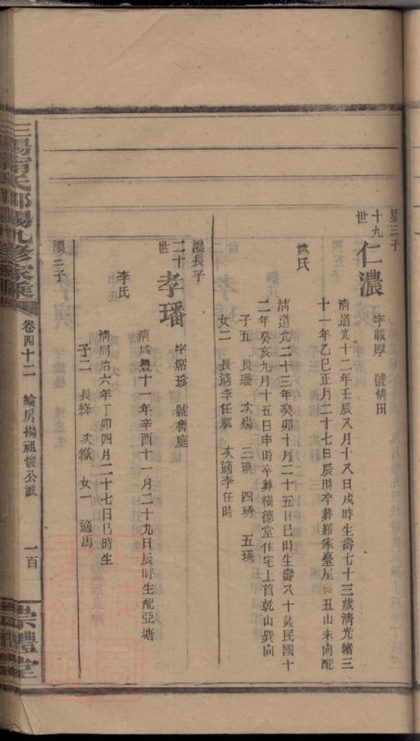 星三子
十九世
仁濃 字蔵厚 號情田
清道光十二年壬辰八月十八日戌時生壽七十三歳清光緒三
十一年乙巳正月二十七日辰時卒葬羅家臺屋後丑山未向配
氏
清道光二十三年癸卯十月二十五日巳時生壽八十歲民國十
二年癸亥九月十五日申時卒葬樹德堂住宅上首乾山巽向
子五 長璠 次瑞 三瑛 四琇 五瑛
女二 長適李任 次適李任時
濃長子
二十世
孝璠 字席珍 號魯庭
清咸豐十一年辛酉十一月二十九日辰時生配亞塘
李氏
清同治六年丁卯四月二十七日巳時生
子二 長緯 次織 女一 適馮
濃二子
卷四十二 綸房揚祖懷公派 一百 崇禮堂